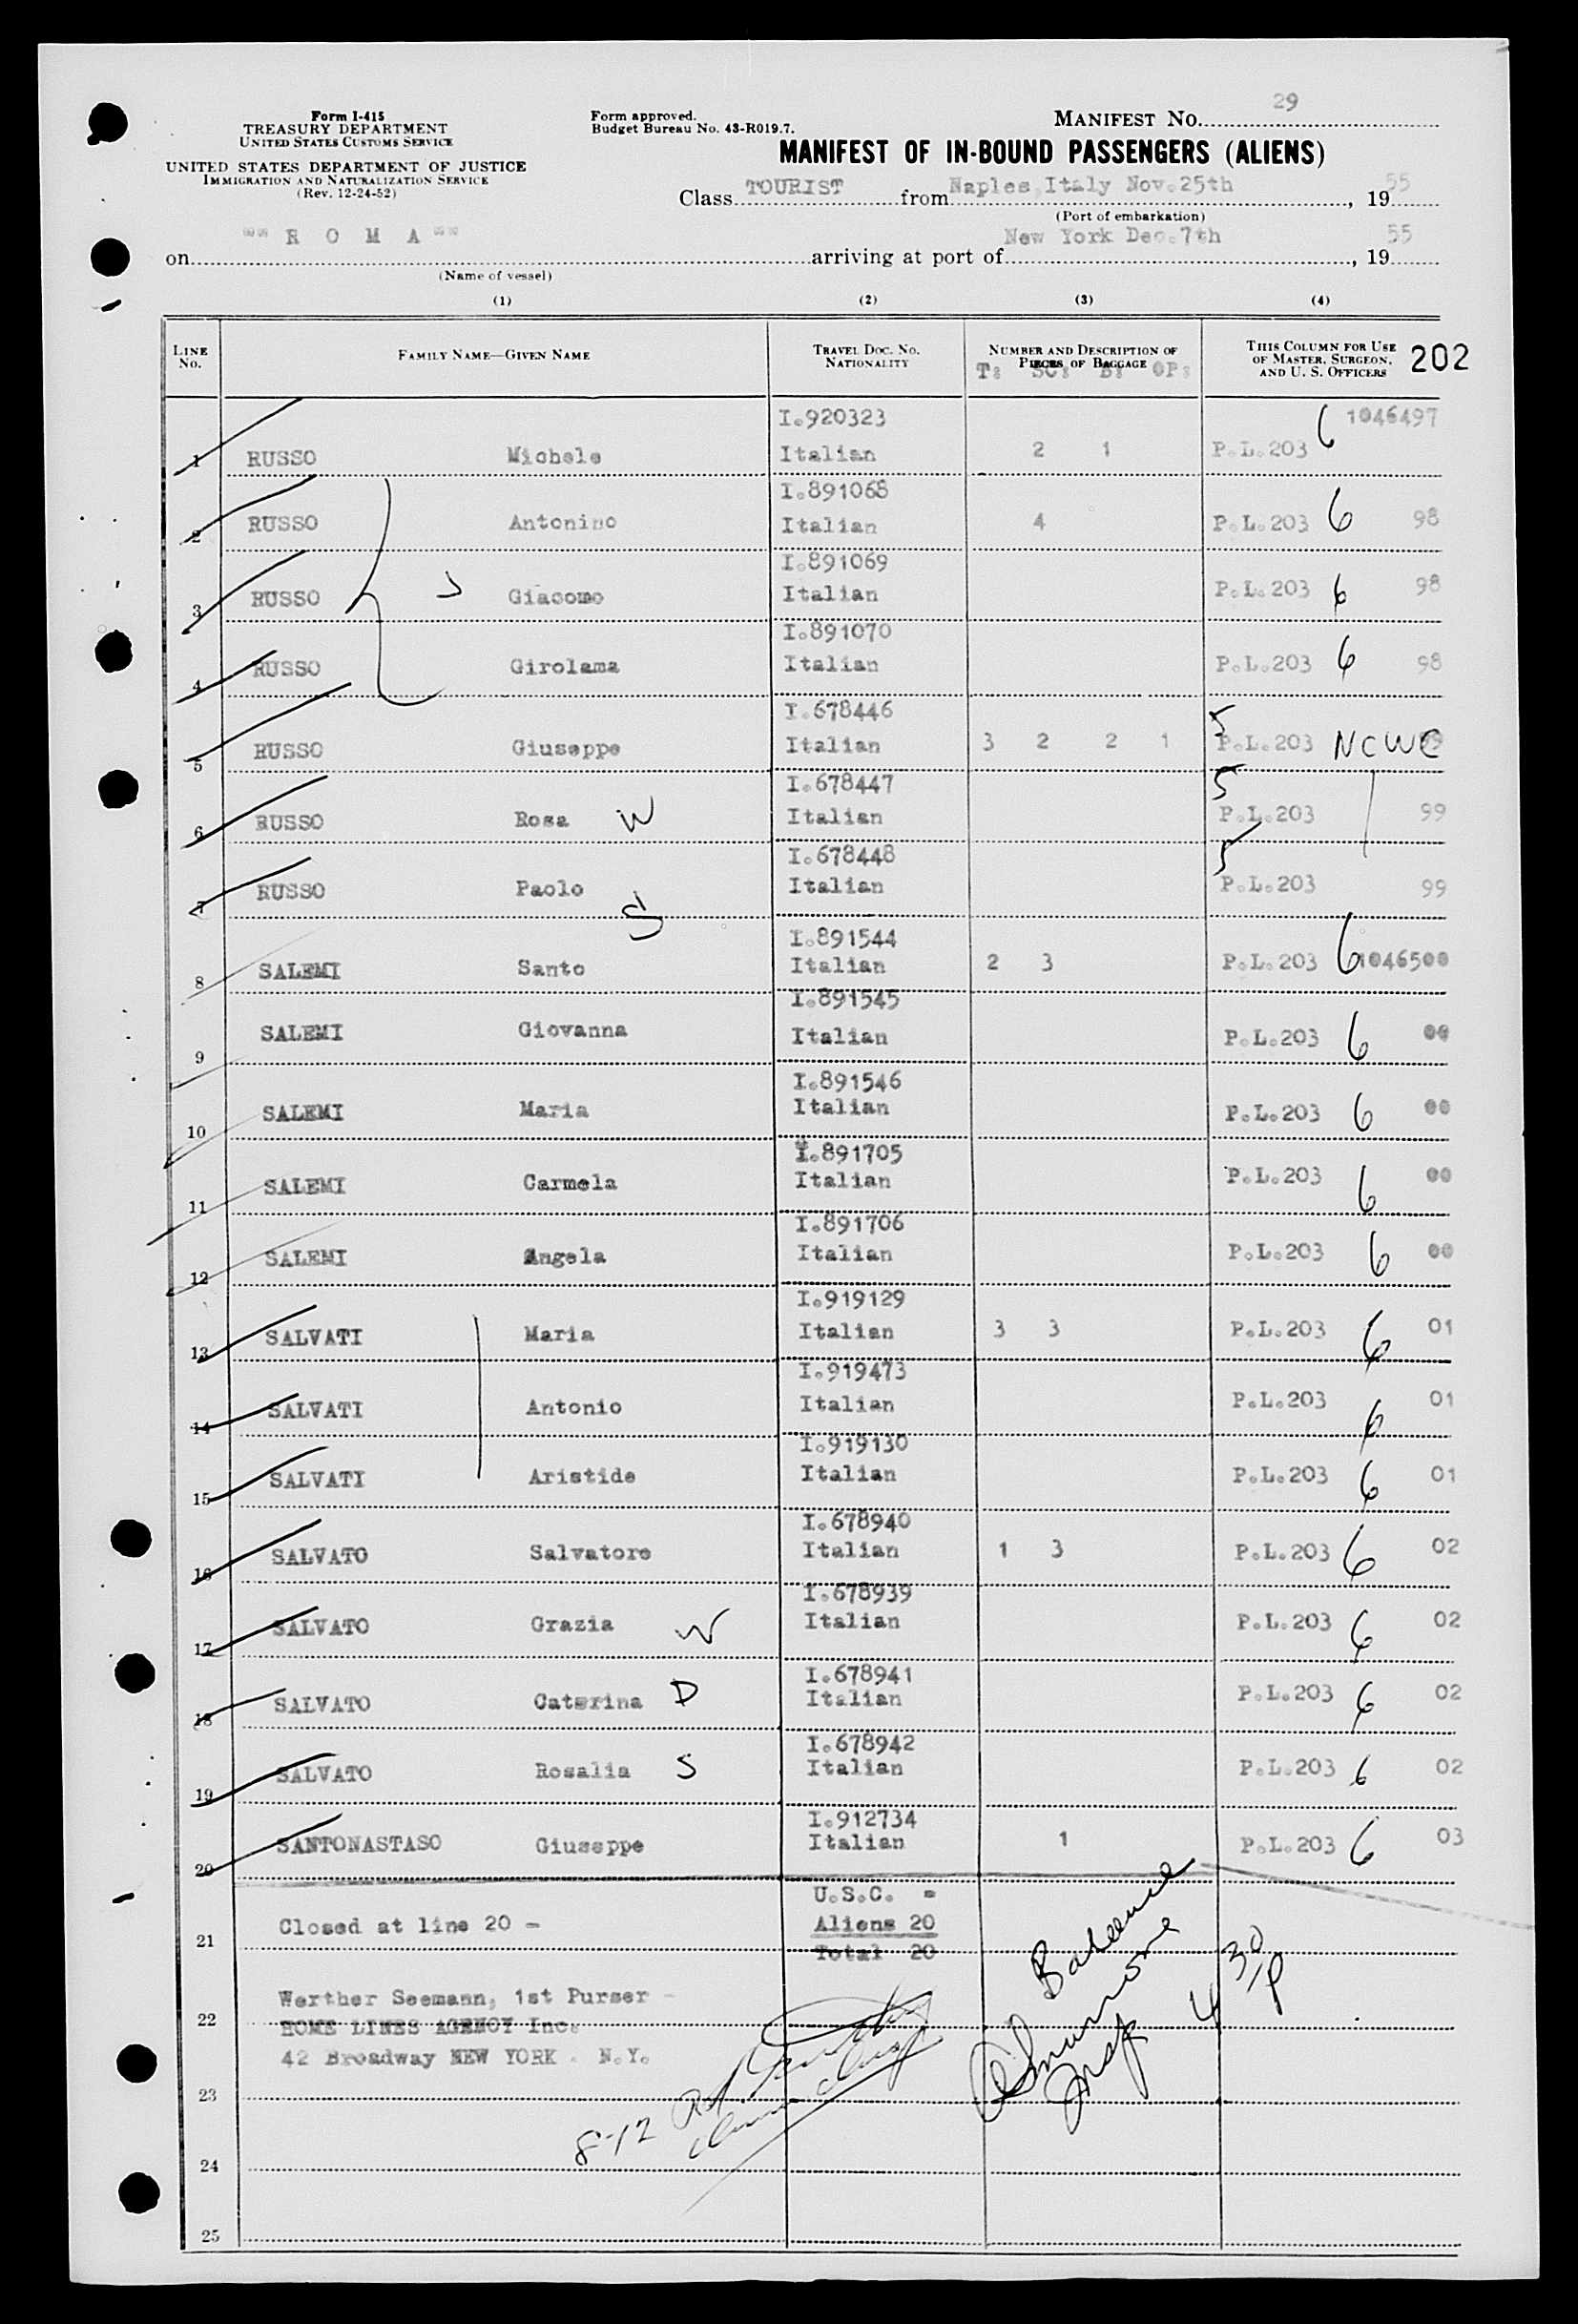 Form I-415
TREASURY DEPARTMENT
UNITED STATES CUSTOMS SERVICE
UNITED STATES DEPARTMENT OF JUSTICE
IMMIGRATION AND NATURALIZATION SERVICE
(Rev. 12-24-52)
Form approved.
Budget Bureau No. 43-R019.7.
MANIFEST NO. 29
MANIFEST OF IN-BOUND PASSENGERS (ALIENS)
Class TOURIST from Naples, Italy Nov. 25th, 1955
(Port of embarkation)
on "" R O M A "" arriving at port of New York Dec. 7th, 1955
(Name of vessel)
(1) (2) (3) (4)
LINE No. FAMILY NAME—GIVEN NAME TRAVEL DOC. NO. NATIONALITY NUMBER AND DESCRIPTION OF PIECES OF BAGGAGE THIS COLUMN FOR USE OF MASTER, SURGEON, AND U. S. OFFICERS 202
T: SC: B: OP:
I.920323 1046497
1 RUSSO Michele Italian 2 1 P.L.203 6
I.891068
2 RUSSO Antonino Italian 4 P.L.203 6 98
I.891069
3 RUSSO Giacomo Italian P.L.203 6 98
I.891070
4 RUSSO Girolama Italian P.L.203 6 98
I.678446
5 RUSSO Giuseppe Italian 3 2 2 1 5 P.L.203 NCWC 99
I.678447
6 RUSSO Rosa W Italian 5 P.L.203 99
I.678448
7 RUSSO Paolo S Italian 5 P.L.203 99
I.891544
8 SALEMI Santo Italian 2 3 P.L.203 6 1046500
I.891545
9 SALEMI Giovanna Italian P.L.203 6 00
I.891546
10 SALEMI Maria Italian P.L.203 6 00
I.891705
11 SALEMI Carmela Italian P.L.203 6 00
I.891706
12 SALEMI Angela Italian P.L.203 6 00
I.919129
13 SALVATI Maria Italian 3 3 P.L.203 6 01
I.919473
14 SALVATI Antonio Italian P.L.203 6 01
I.919130
15 SALVATI Aristide Italian P.L.203 6 01
I.678940
16 SALVATO Salvatore Italian 1 3 P.L.203 6 02
I.678939
17 SALVATO Grazia W Italian P.L.203 6 02
I.678941
18 SALVATO Caterina D Italian P.L.203 6 02
I.678942
19 SALVATO Rosalia S Italian P.L.203 6 02
I.912734
20 SANTONASTASO Giuseppe Italian 1 P.L.203 6 03
U.S.C. =
21 Closed at line 20 - Aliens 20
Total 20
Werther Seemann, 1st Purser -
22 HOME LINES AGENCY Inc.
42 Broadway NEW YORK . N.Y.
4 30/P
Insp
23
8-12
24
25